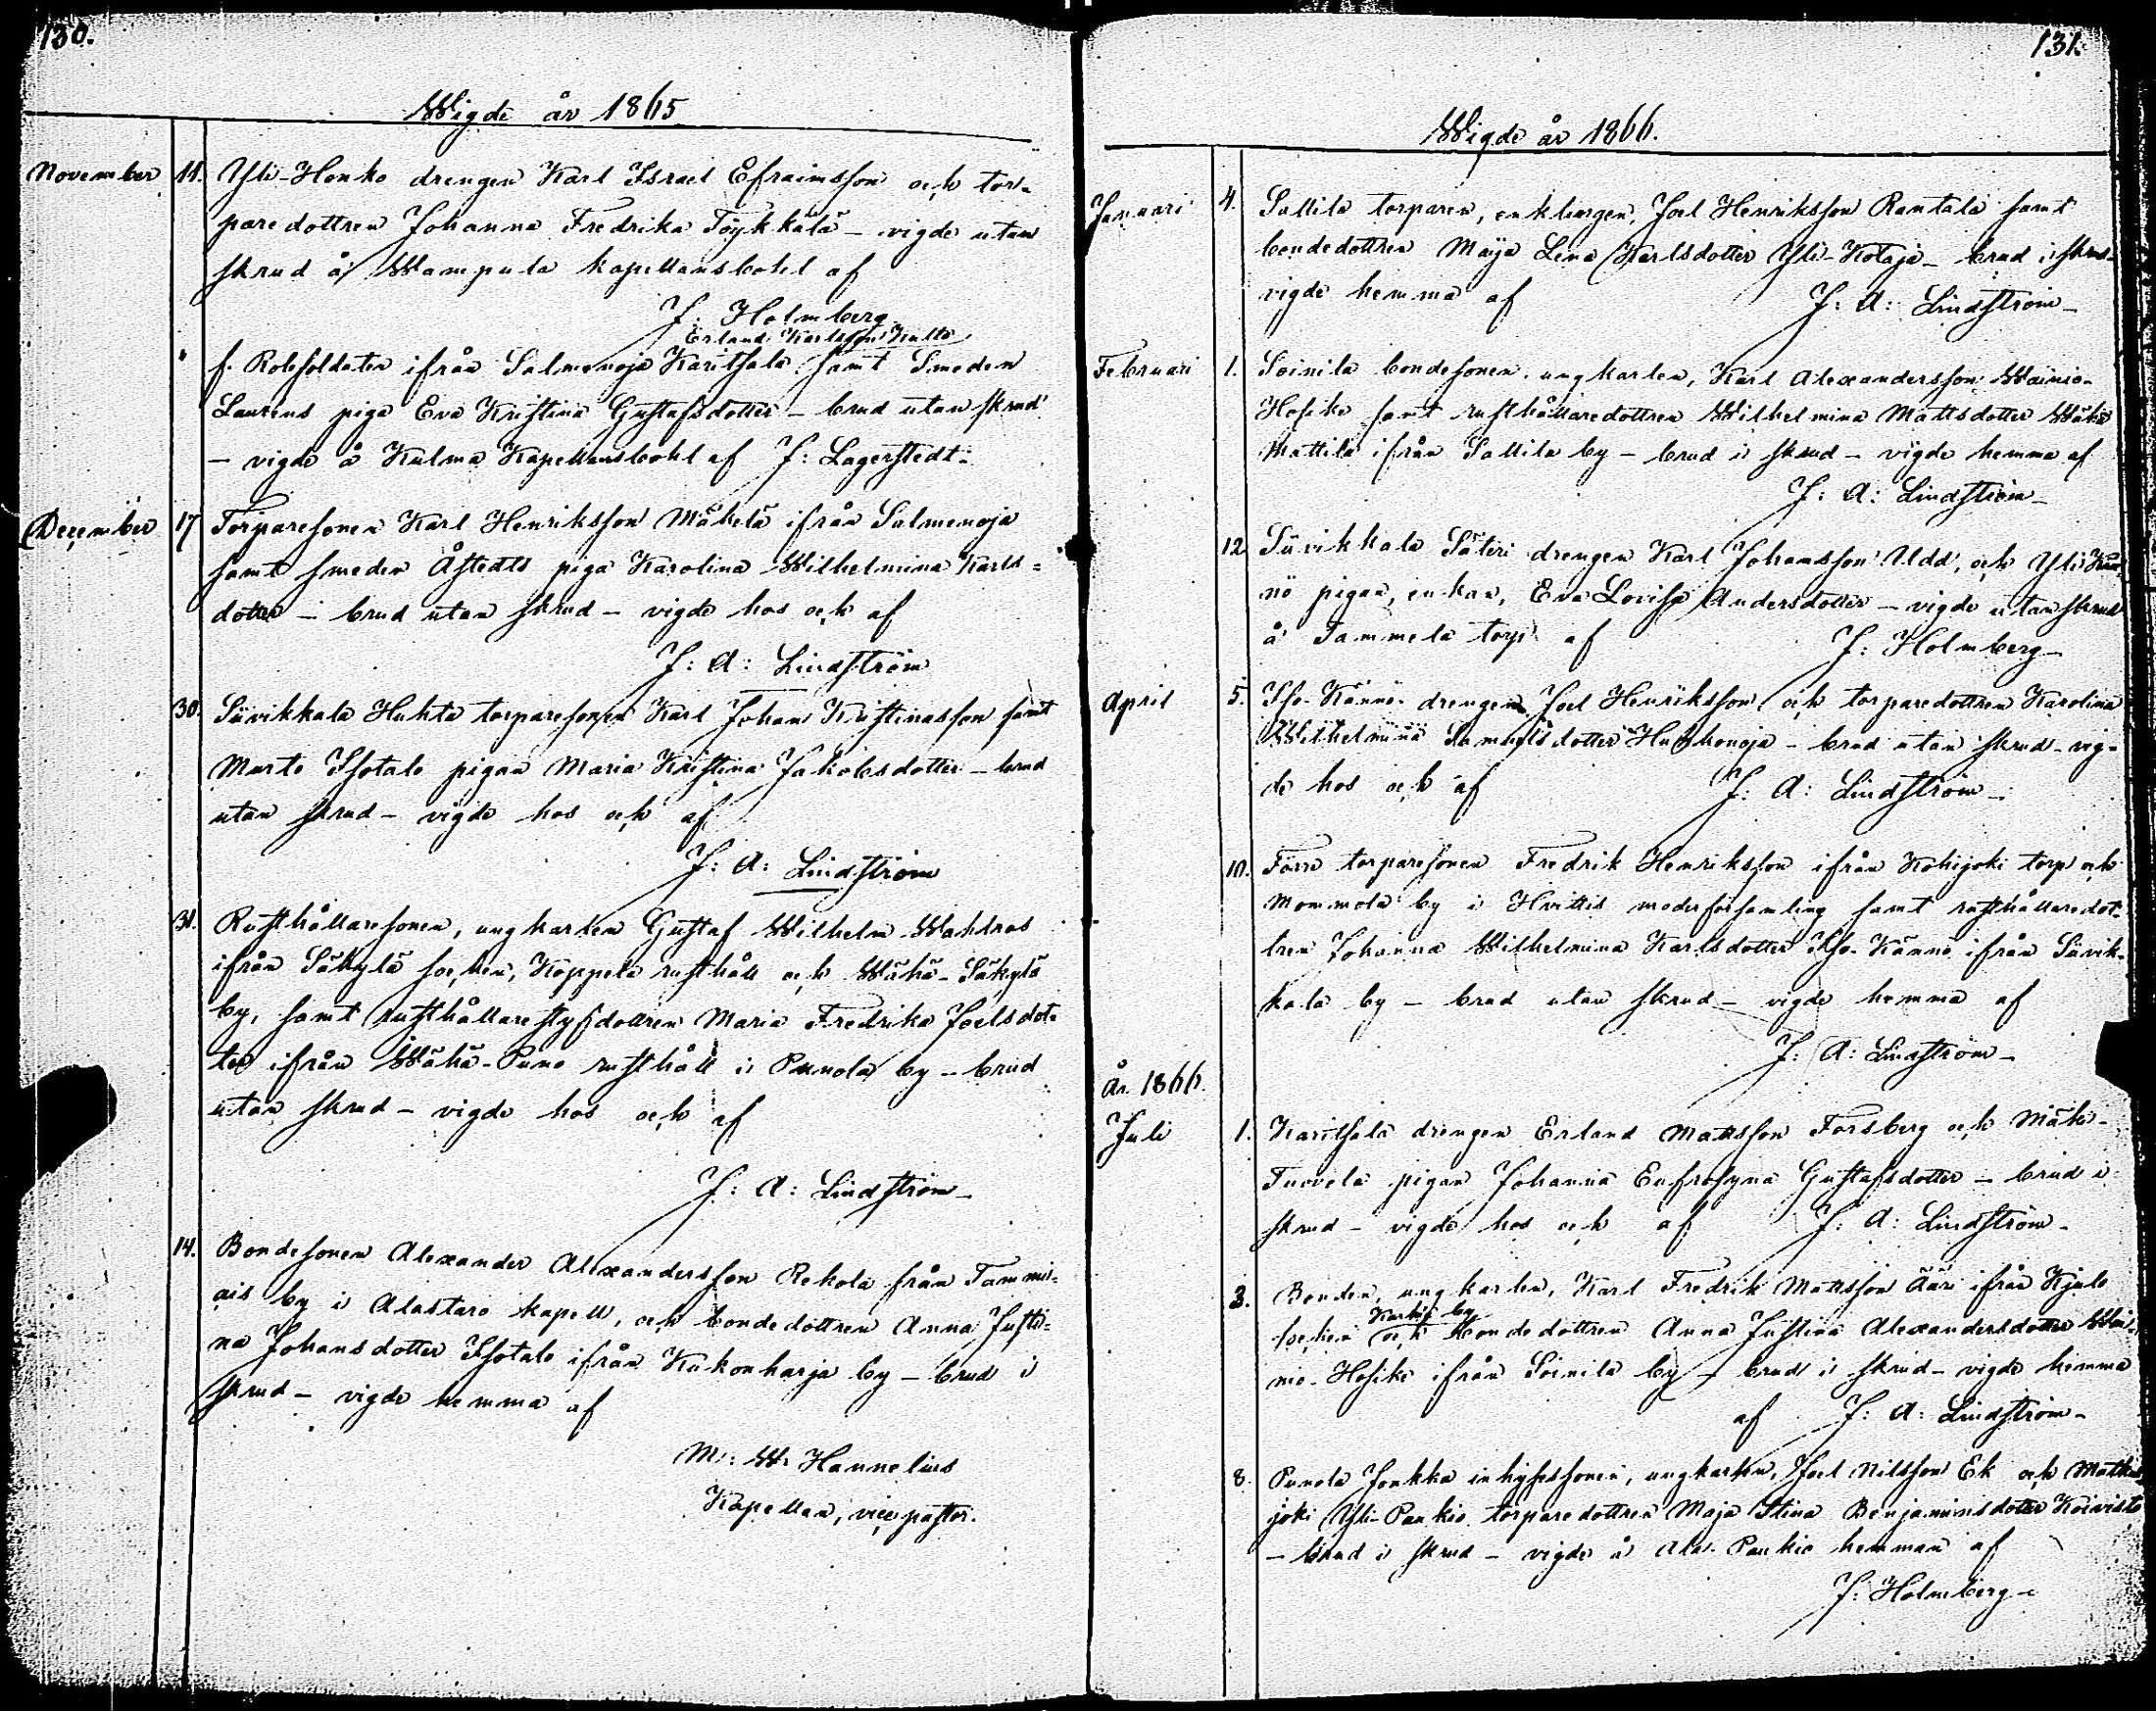 130.
Wigde år 1865
November 11. Yli-Honko drengen Karl Israel Efraimsson och tor-
paredottren Johanna Fredrika Töykkälä - vigde utan
skrud å Wampula kapellansbohl af
J. Holmberg
Erland Karlsson Kulto
" f. Rotesoldaten ifrån Salmenoja Karitsala samt Smeden
Laurens piga Eva Kristina Gustafsdotter - brud utan skrud
- vigde å Kulma Kapellansbohl af J: Lagerstedt.
December 17 Torparesonen Karl Henriksson Mäkelä ifrån Salmenoja
samt smeden Åstedts piga Karolina Wilhelmina Karls=
dotter - brud utan skrud - vigde hos och af
J: A: Lindström
30. Sävikkala Huhta torparesonen Karl Johan Kristinasson samt
Murto Isotalo pigan Maria Kristina Jakobsdotter - brud
utan skrud - vigde hos och af
J: A: Lindström
31. Rusthållaresonen, ungkarlen Gustaf Wilhelm Wahlros
ifrån Säkylä socken, Köppelä rusthåll och Wähä-Säkylä
by, samt rusthållarestyfdottren Maria Fredrika Joelsdot-
ter ifrån Wähä-Puno rusthåll i Punola by - brud
utan skrud - vigde hos och af
J: A: Lindström -
14. Bondesonen Alexander Alexandersson Rekola från Tammi-
ais by i Alastaro kapell, och bondedottren Anna Justi=
na Johansdotter Isotalo ifrån Kukonharja by - brud i
skrud - vigde hemma af
M: W: Hannelius
Kapellan, vice pastor.
131.
Wigde år 1866.
Januari 4. Sallila torparen, enklingen, Joel Henriksson Rantala samt
bondedottren Maja Lena Karlsdotter Yli-Kotaja - brud i skrud -
vigde hemma af J: A: Lindström -
Februari 1. Soinila bondesonen, ungkarlen, Karl Alexandersson Wainio-
Hosike samt rusthållaredottren Wilhelmina Mattsdotter Wähä
Mattila ifrån Sallila by - brud i skrud - vigde hemma af
J: A: Lindström -
12 Sävikkala Säteri drengen Karl Johansson Udd, och Yli Kän
nö pigan, enkan, Eva Lovisa Andersdotter - vigde utan skrud
å Tammela torp af J: Holmberg -
April 5. Iso-Kännö drengen Joel Henriksson och torparedottren Karolina
Wilhelmina Samuelsdotter Huhkonoja - brud utan skrud - vig-
de hos och af J: A: Lindström -
10. Förre torparesonen Fredrik Henriksson ifrån Kohijoki torp och
Mommola by i Hvittis moderförsamling samt rusthållaredot-
tren Johanna Wilhelmina Karlsdotter Iso-Kännö ifrån Sävik-
kala by - brud utan skrud - vigde hemma af
J: A: Lindström -
År 1866.
Juli 1. Karitsala drengen Erland Mattsson Forsberg och Mäki-
Tuovola pigan Johanna Eufrosyna Gustafsdotter - brud i
skrud - vigde hos och af J: A: Lindström -
3. Bonden, ungkarlen, Karl Fredrik Mattsson Ääri ifrån Kjulo
Karhia by
socken och bondedottren Anna Justina Alexandersdotter Wai-
nio-Hosike ifrån Soinila by - brud i skrud - vigde hemma
af J: A: Lindström -
8. Punola Jonkka inhysessonen, ungkarlen, Joel Nilsson Ek och Mathi-
joki Yli-Paukio torparedottren Maja Stina Benjaminsdotter Koivisto
- brud i skrud - vigde å Ala-Paukio hemman af
J: Holmberg -